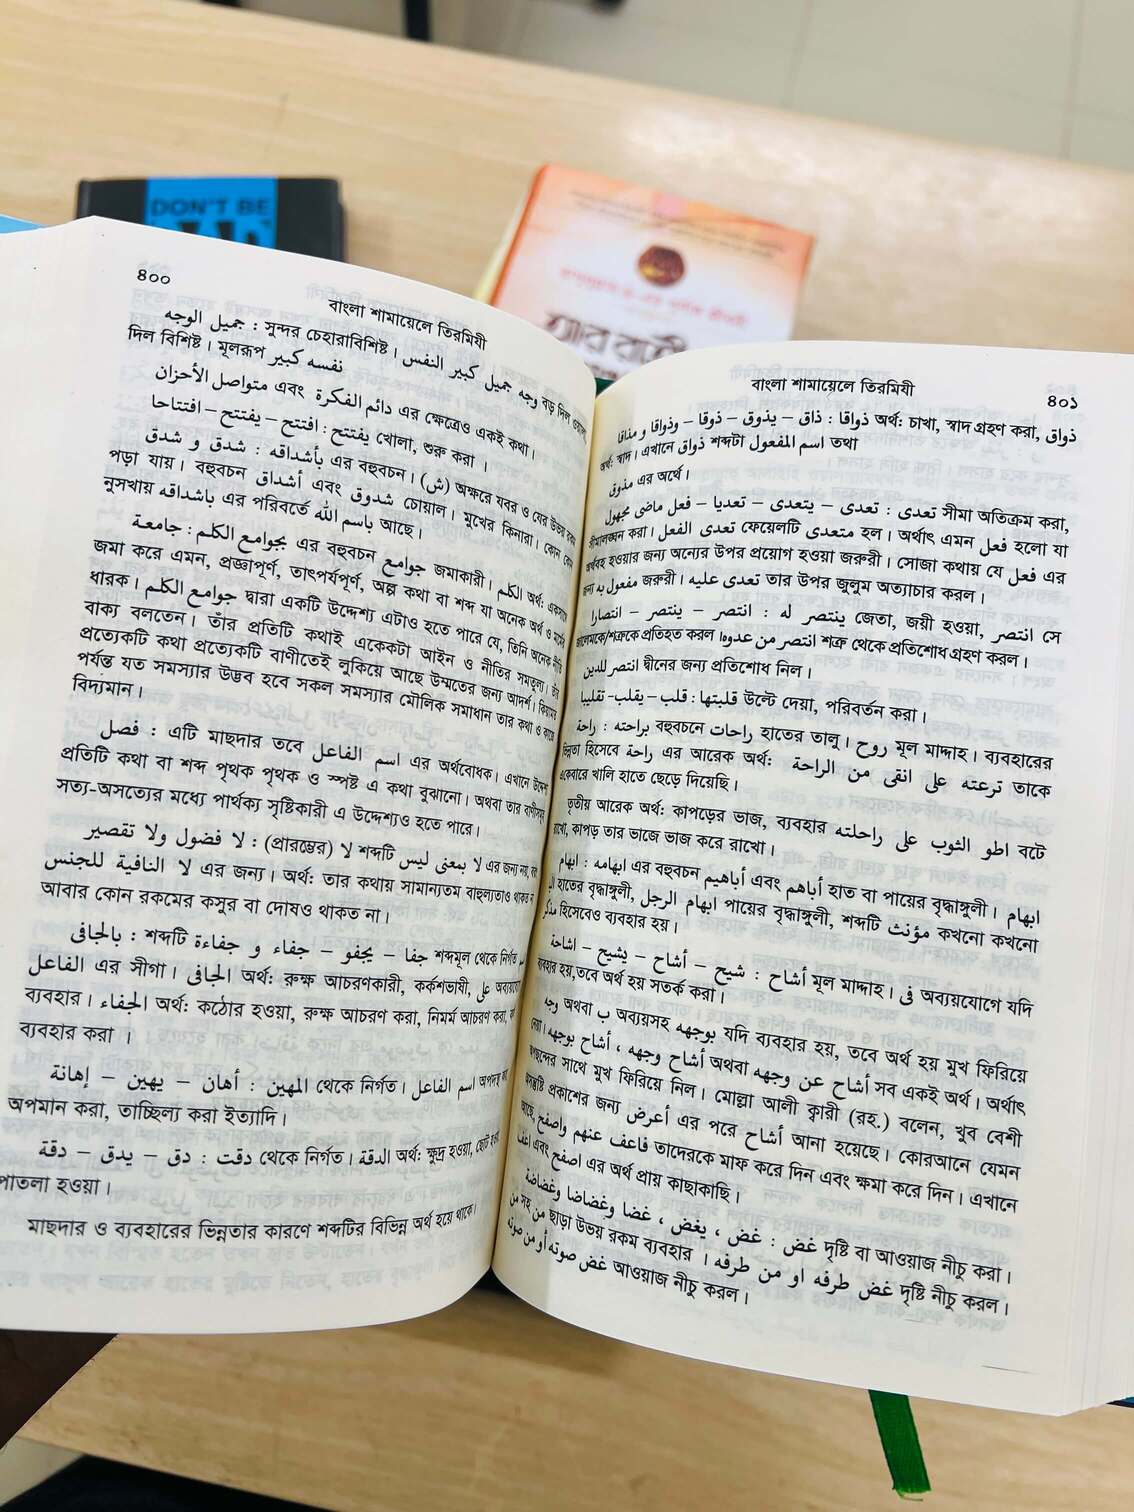 DON'T BE
৪০০
বাংলা শামায়েলে তিরমিযী
جميل الوجه : সুন্দর চেহারাবিশিষ্ট। وجه جميل كبير النفس বড় দিল
দিল বিশিষ্ট। মূলরূপ نفسه كبير
متواصل الأحزان এবং دائم الفكرة এর ক্ষেত্রেও একই কথা।
يفتتح : افتتح – يفتتح – افتتاحا খোলা, শুরু করা ।
بأشداقه : شدق و شدق এর বহুবচন। (ش) অক্ষরে যবর ও যের উভয়
পড়া যায়। বহুবচন أشداق এবং شدوق চোয়াল। মুখের কিনারা। কোন কোন
নুসখায় بأشداقه এর পরিবর্তে باسم الله আছে।
بجوامع الكلم : جامعة এর বহুবচন جوامع জমাকারী। الكلم অর্থ: একসাথে
জমা করে এমন, প্রজ্ঞাপূর্ণ, তাৎপর্যপূর্ণ, অল্প কথা বা শব্দ যা অনেক অর্থ ও মর্মের
ধারক। جوامع الكلم দ্বারা একটি উদ্দেশ্য এটাও হতে পারে যে, তিনি অনেক নীতি
বাক্য বলতেন। তাঁর প্রতিটি কথাই একেকটা আইন ও নীতির সমতুল্য। তাঁর
প্রত্যেকটি কথা প্রত্যেকটি বাণীতেই লুকিয়ে আছে উম্মতের জন্য আদর্শ। কিয়ামত
পর্যন্ত যত সমস্যার উদ্ভব হবে সকল সমস্যার মৌলিক সমাধান তার কথা ও কাজে
বিদ্যমান।
فصل : এটি মাছদার তবে اسم الفاعل এর অর্থবোধক। এখানে উদ্দেশ্য
প্রতিটি কথা বা শব্দ পৃথক পৃথক ও স্পষ্ট এ কথা বুঝানো। অথবা তার বাণীসমূহ
সত্য-অসত্যের মধ্যে পার্থক্য সৃষ্টিকারী এ উদ্দেশ্যও হতে পারে।
لا فضول ولا تقصير : (প্রারম্ভের) لا শব্দটি لا بمعنى ليس এর জন্য নয়, বরং
لا النافية للجنس এর জন্য। অর্থ: তার কথায় সামান্যতম বাহুল্যতাও থাকত না
আবার কোন রকমের কসুর বা দোষও থাকত না।
بالجافى : শব্দটি جفا – يجفو – جفاء و جفاءة শব্দমূল থেকে নির্গত
الفاعل এর সীগা। الجافى অর্থ: রুক্ষ আচরণকারী, কর্কশভাষী, على অব্যয়যোগে
ব্যবহার। الجفاء অর্থ: কঠোর হওয়া, রুক্ষ আচরণ করা, নিমর্ম আচরণ করা,
ব্যবহার করা ।
المهين : أهان – يهين – إهانة থেকে নির্গত। اسم الفاعل অপদস্থ
অপমান করা, তাচ্ছিল্য করা ইত্যাদি।
دقت : دق – يدق – دقة থেকে নির্গত। الدقة অর্থ: ক্ষুদ্র হওয়া, ছোট হওয়া,
পাতলা হওয়া।
মাছদার ও ব্যবহারের ভিন্নতার কারণে শব্দটির বিভিন্ন অর্থ হয়ে থাকে।
বাংলা শামায়েলে তিরমিযী
৪০১
ذواقا : ذاق – يذوق – ذوقا – وذواقا و مذاقا অর্থ: চাখা, স্বাদ গ্রহণ করা, ذواق
অর্থ: স্বাদ। এখানে ذواق শব্দটা اسم المفعول তথা
مذوق এর অর্থে।
تعدى : تعدى – يتعدى – تعديا – فعل ماضى مجهول সীমা অতিক্রম করা,
সীমালঙ্ঘন করা। تعدى الفعل ফেয়েলটি متعدى হল। অর্থাৎ এমন فعل হলো যা
অর্থবহ হওয়ার জন্য অন্যের উপর প্রয়োগ হওয়া জরুরী। সোজা কথায় যে فعل এর
জন্য مفعول به জরুরী। تعدى عليه তার উপর জুলুম অত্যাচার করল।
ينتصر له : انتصر – ينتصر – انتصارا জেতা, জয়ী হওয়া, انتصر সে
জালেমকে/শত্রুকে প্রতিহত করল। انتصر من عدوه শত্রু থেকে প্রতিশোধ গ্রহণ করল।
انتصر للدين দ্বীনের জন্য প্রতিশোধ নিল।
قلبتها : قلب – يقلب- تقليبا উল্টে দেয়া, পরিবর্তন করা।
براحته : راحة বহুবচনে راحات হাতের তালু। روح মূল মাদ্দাহ। ব্যবহারের
ভিন্নতা হিসেবে راحة এর আরেক অর্থ: ترعته على انقى من الراحة তাকে
একেবারে খালি হাতে ছেড়ে দিয়েছি।
তৃতীয় আরেক অর্থ: কাপড়ের ভাজ, ব্যবহার اطو الثوب على راحلته বটে
রাখো, কাপড় তার ভাজে ভাজ করে রাখো।
ابهامه : ابهام এর বহুবচন أباهيم এবং أباهم হাত বা পায়ের বৃদ্ধাঙ্গুলী। ابهام
হাতের বৃদ্ধাঙ্গুলী, ابهام الرجل পায়ের বৃদ্ধাঙ্গুলী, শব্দটি مؤنث কখনো কখনো
مذكر হিসেবেও ব্যবহার হয়।
أشاح : شيح – أشاح – يشيح – اشاحة মূল মাদ্দাহ। فى অব্যয়যোগে যদি
ব্যবহার হয়,তবে অর্থ হয় সতর্ক করা।
وجه অথবা ب অব্যয়সহ بوجهه যদি ব্যবহার হয়, তবে অর্থ হয় মুখ ফিরিয়ে
নেয়া। أشاح عن وجهه অথবা أشاح وجهه ، أشاح بوجهه সব একই অর্থ। অর্থাৎ
অপছন্দের সাথে মুখ ফিরিয়ে নিল। মোল্লা আলী ক্বারী (রহ.) বলেন, খুব বেশী
অসন্তুষ্টি প্রকাশের জন্য أعرض এর পরে أشاح আনা হয়েছে। কোরআনে যেমন
আছে, فاعف عنهم واصفح তাদেরকে মাফ করে দিন এবং ক্ষমা করে দিন। এখানে
اعفا এবং اصفح এর অর্থ প্রায় কাছাকাছি।
غض : غض ، يغض ، غضا وغضاضا وغضاضة দৃষ্টি বা আওয়াজ নীচু করা।
من সহ من ছাড়া উভয় রকম ব্যবহার । غض طرفه او من طرفه দৃষ্টি নীচু করল।
غض صوته أو من صوته আওয়াজ নীচু করল।